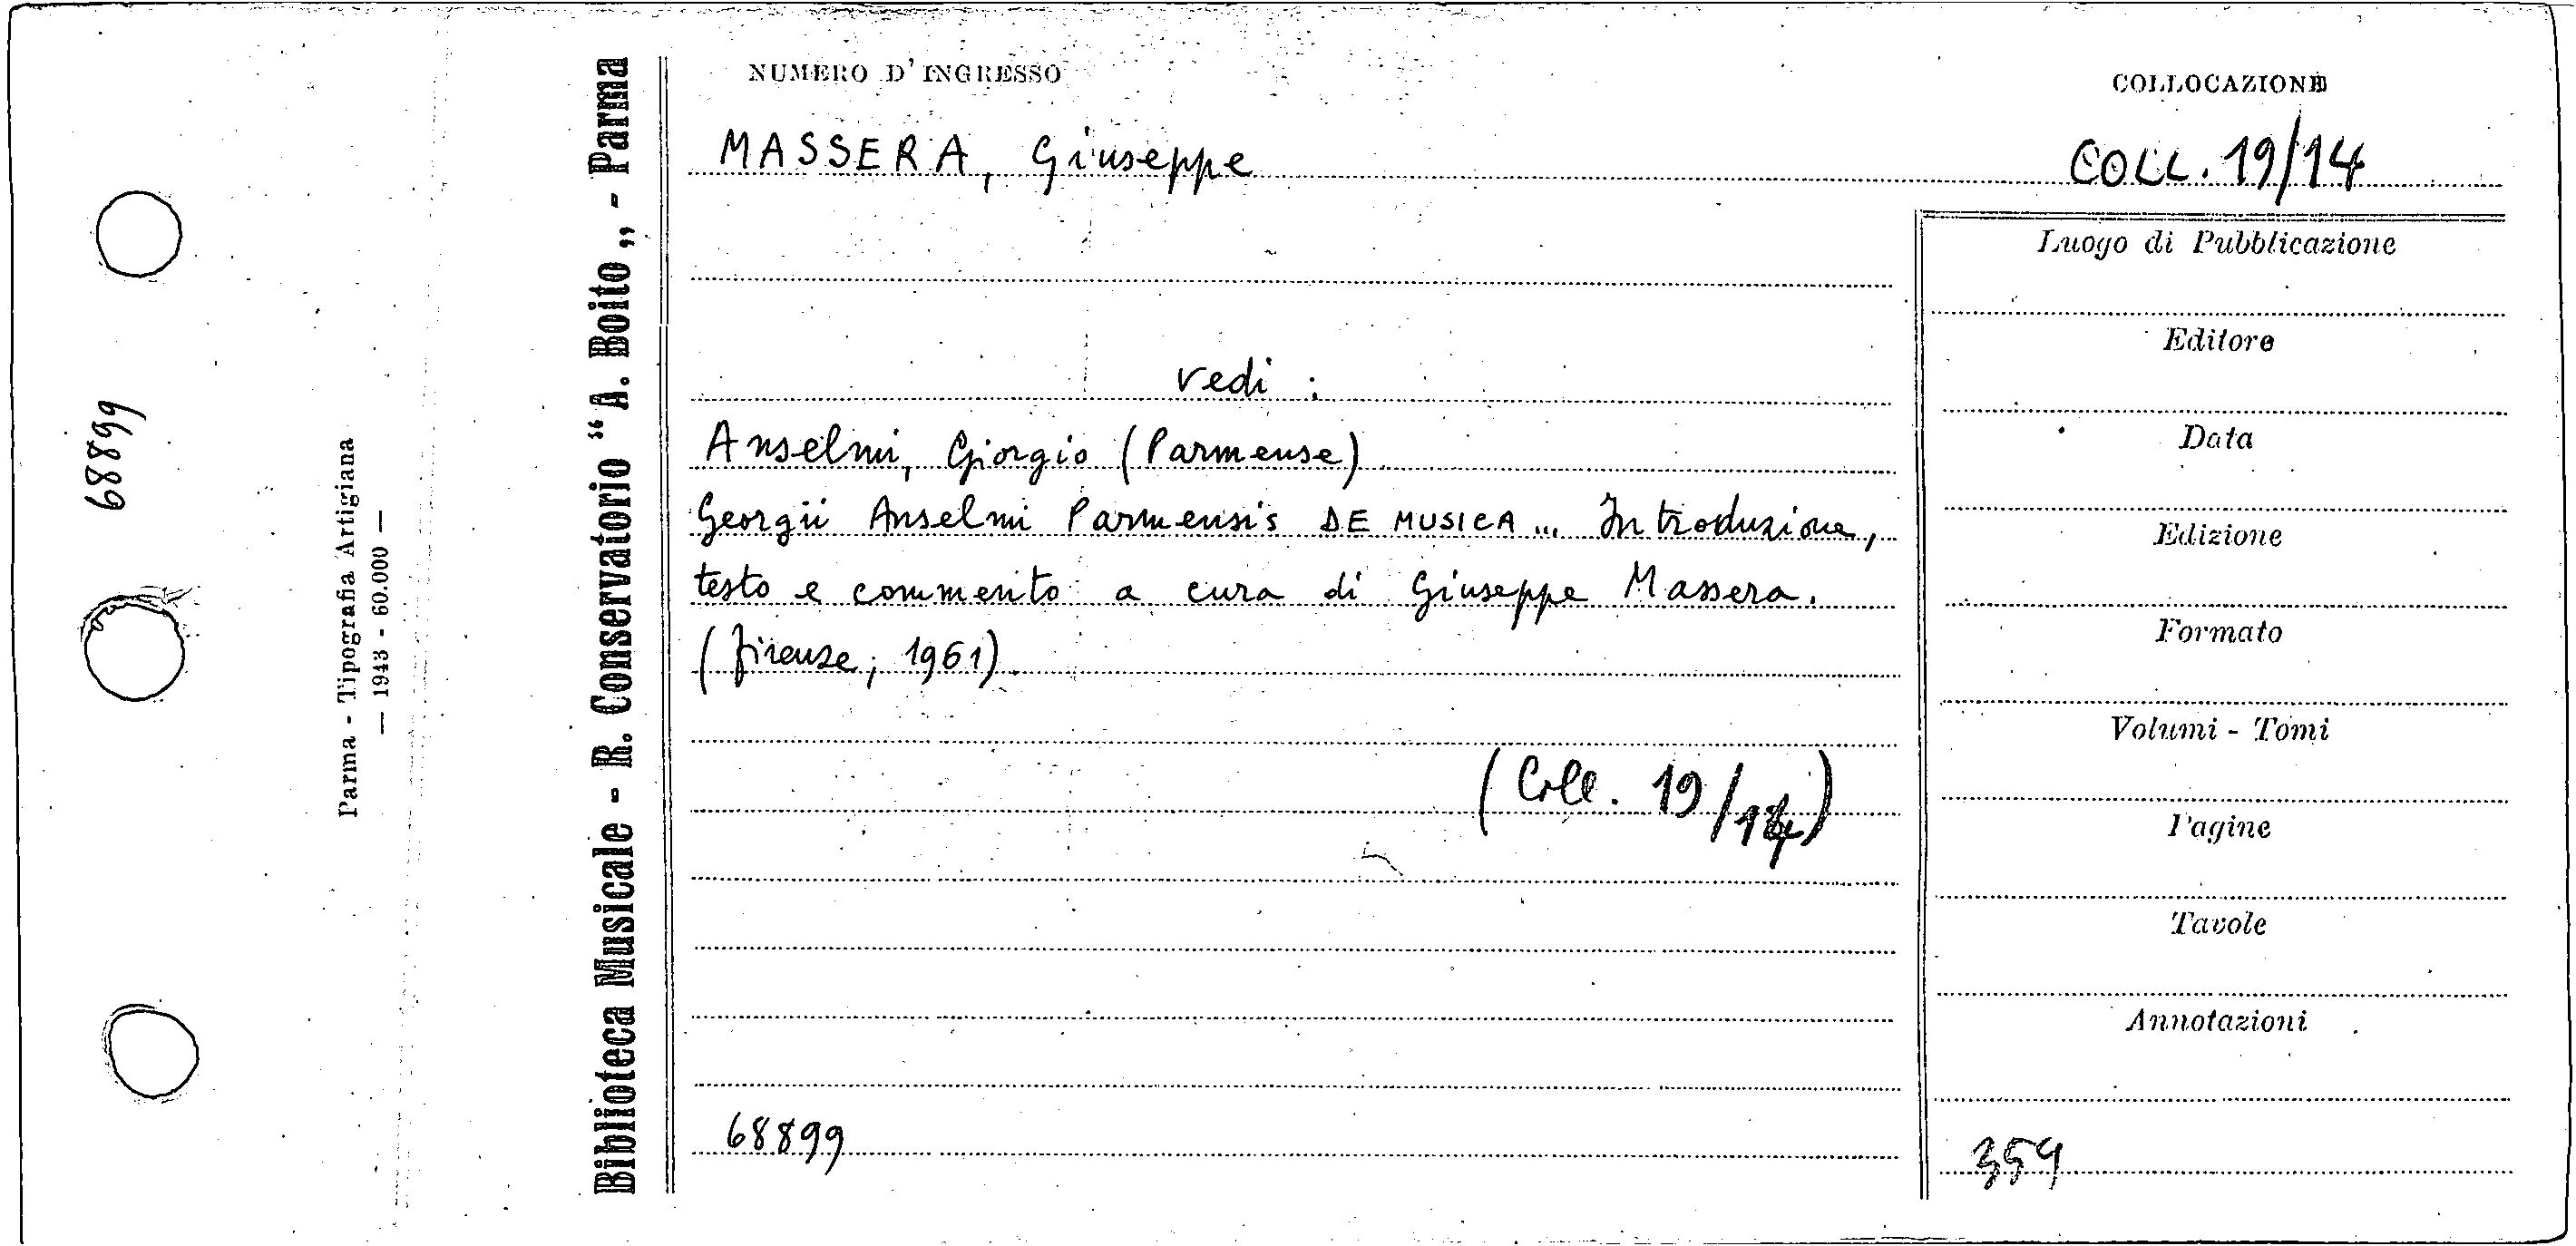 68899
Parma - Tipografia Artigiana
— 1943 - 60.000 —
Biblioteca Musicale - R. Conservatorio “A. Boito„ - Parma
NUMERO D'INGRESSO
COLLOCAZIONE
MASSERA, Giuseppe
COLL. 19/14
vedi :
Anselmi, Giorgio (Parmense)
Georgii Anselmi Parmensis DE MUSICA ... Introduzione,
testo e commento a cura di Giuseppe Massera.
(Firenze, 1961).
(Coll. 19/14)
68899
Luogo di Pubblicazione
Editore
Data
Edizione
Formato
Volumi - Tomi
Pagine
Tavole
Annotazioni
359